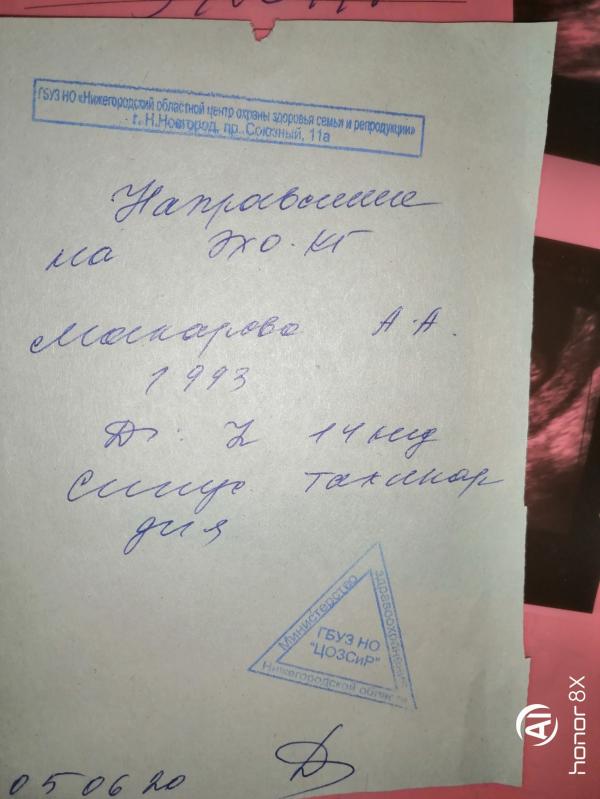 ГБУЗ НО «Нижегородский областной центр охраны здоровья семьи и репродукции»
г. Н.Новгород, пр. Союзный, 11а
Направление
на ЭХО-КГ
Макарова А.А.
1993
Ds: 14 нед
Синус тахикар
дия
Министерство
здравоохранения
Нижегородской области
ГБУЗ НО
"ЦОЗСиР"
050620
AI
honor 8X